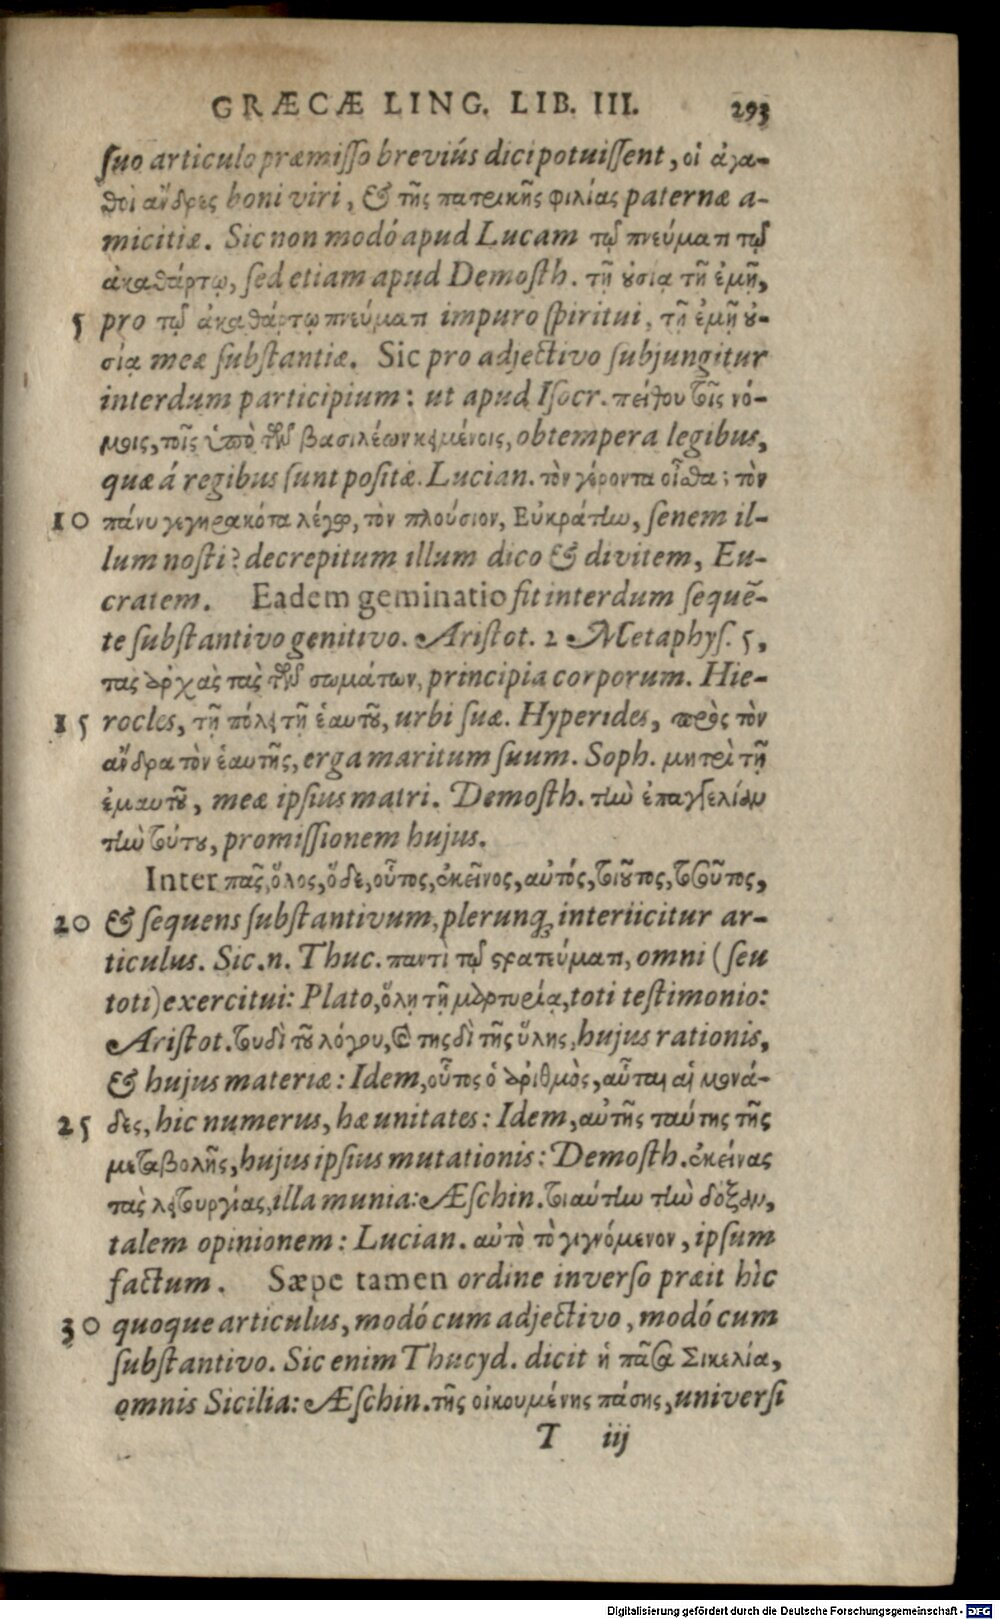 GRÆCÆ LING. LIB. III. 293
ſuo articulo præmiſſo breviús dici potuiſſent, οἱ ἀγα-
θοὶ ἄνδρες boni viri, & τῆς πατρικῆς φιλίας paternæ a-
micitiæ. Sic non modó apud Lucam τῷ πνεύματι τῷ
ἀκαθάρτῳ, ſed etiam apud Demoſth. τῇ ȣσίᾳ τῇ ἐμῇ,
5 pro τῷ ἀκαθάρτῳ πνεύματι impuro ſpiritui, τῇ ἐμῇ ȣ-
σίᾳ meæ ſubſtantiæ. Sic pro adjectivo ſubjungitur
interdum participium: ut apud Iſocr. πείθου τοῖς νό-
μοις, τοῖς ὑπὸ τῶν βασιλέων κειμένοις, obtempera legibus,
quæ á regibus ſunt poſitæ. Lucian. τὸν γέροντα οἶσθα; τὸν
10 πάνυ γεγηρακότα λέγω, τὸν πλούσιον, Εὐκράτην, ſenem il-
lum noſti? decrepitum illum dico & divitem, Eu-
cratem. Eadem geminatio fit interdum ſequē-
te ſubſtantivo genitivo. Ariſtot. 2 Metaphyſ. 5,
τὰς ἀρχὰς τὰς τῶν σωμάτων, principia corporum. Hie-
15 rocles, τῇ πόλει τῇ ἑαυτοῦ, urbi ſuæ. Hyperides, πρὸς τὸν
ἄνδρα τὸν ἑαυτῆς, erga maritum ſuum. Soph. μητρὶ τῇ
ἐμαυτοῦ, meæ ipſius matri. Demoſth. τὴν ἐπαγγελίαν
τὴν τούτου, promiſſionem hujus.
Inter πᾶς, ὅλος, ὅδε, οὗτος, ἐκεῖνος, αὐτός, τοιοῦτος, τοσοῦτος,
20 & ſequens ſubſtantivum, plerunq; interiicitur ar-
ticulus. Sic.n. Thuc. παντὶ τῷ στρατεύματι, omni (ſeu
toti) exercitui: Plato, ὅλῃ τῇ μαρτυρίᾳ, toti teſtimonio:
Ariſtot. τουδὶ τοῦ λόγου, & τησδὶ τῆς ὕλης, hujus rationis,
& hujus materiæ: Idem, οὗτος ὁ ἀριθμὸς, αὗται αἱ μονά-
25 δες, hic numerus, hæ unitates: Idem, αὐτῆς ταύτης τῆς
μεταβολῆς, hujus ipſius mutationis: Demoſth. ἐκείνας
τὰς λειτουργίας, illa munia: Æſchin. τοιαύτην τὴν δόξαν,
talem opinionem: Lucian. αὐτὸ τὸ γιγνόμενον, ipſum
factum. Sæpe tamen ordine inverſo præit hìc
30 quoque articulus, modó cum adjectivo, modó cum
ſubſtantivo. Sic enim Thucyd. dicit ἡ πᾶσα Σικελία,
omnis Sicilia: Æſchin. τῆς οἰκουμένης πάσης, univerſi
T iij
Digitalisierung gefördert durch die Deutsche Forschungsgemeinschaft - DFG